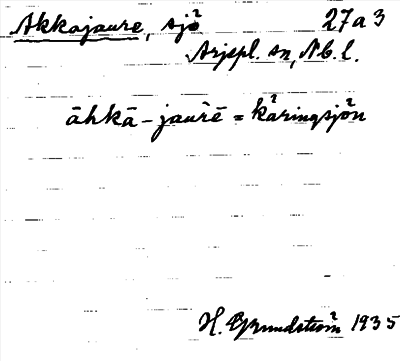 Akkajaure, sjö 27a3
Arjepl. sn, Nb. l.
āhkā – jaurē = kåringsjön
H. Grundström 1935